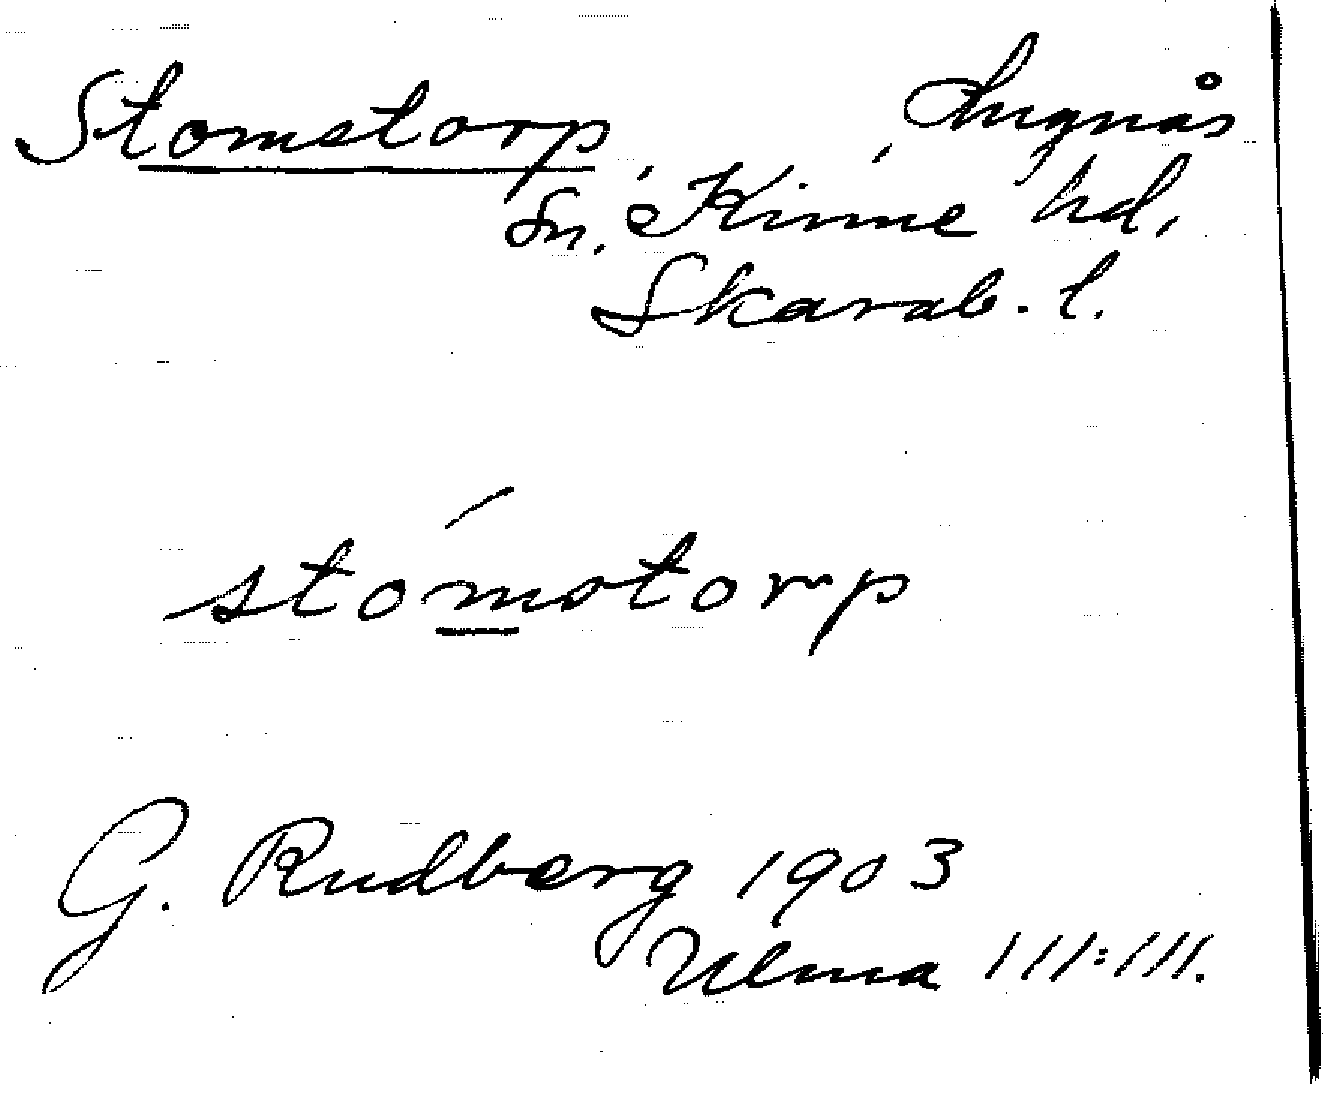 Stomstorp, Lugnås
sn, Kinne hd,
Skarab. l.
stómstorp
G. Rudberg 1903
Ulma 111:111.